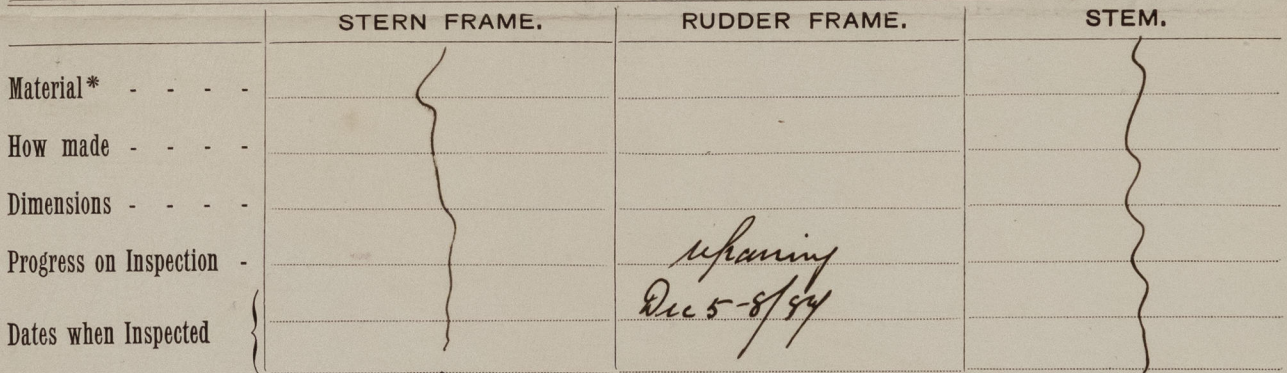 STERN FRAME. RUDDER FRAME. STEM.
Material* - - - -
How made - - - -
Dimensions - - - -
Progress on Inspection - repairing
Dates when Inspected { Dec 5-8/94